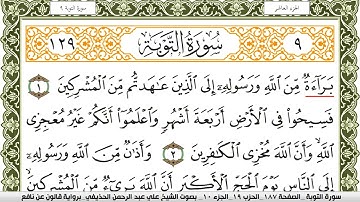 سورة التوبة ٩
الجزء العاشر
١٢٩
سُورَةُ التَّوْبَةِ
٩
بَرَآءَةٌ مِّنَ ٱللَّهِ وَرَسُولِهِۦٓ إِلَى ٱلَّذِينَ عَٰهَدتُّم مِّنَ ٱلْمُشْرِكِينَ ١
فَسِيحُوا۟ فِى ٱلْأَرْضِ أَرْبَعَةَ أَشْهُرٍ وَٱعْلَمُوٓا۟ أَنَّكُمْ غَيْرُ مُعْجِزِى
ٱللَّهِ وَأَنَّ ٱللَّهَ مُخْزِى ٱلْكَٰفِرِينَ ٢ وَأَذَٰنٌ مِّنَ ٱللَّهِ وَرَسُولِهِۦٓ
إِلَى ٱلنَّاسِ يَوْمَ ٱلْحَجِّ ٱلْأَكْبَرِ أَنَّ ٱللَّهَ بَرِىٓءٌ مِّنَ ٱلْمُشْرِكِينَ
سورة التوبة، الصفحة ١٨٧ الحزب ١٩، الجزء ١٠ بصوت الشيخ علي عبد الرحمن الحذيفي برواية قالون عن نافع